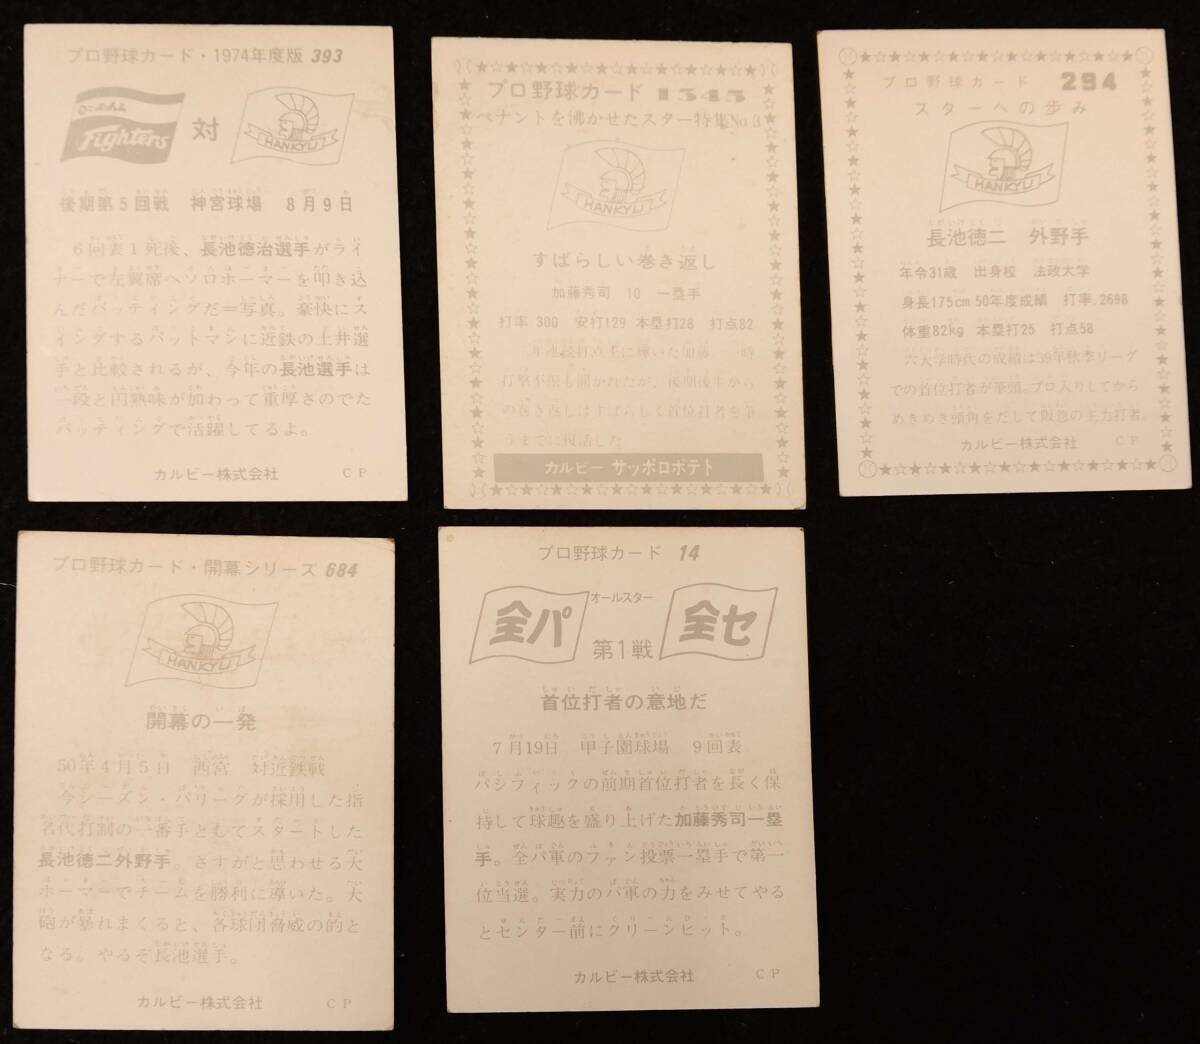 プロ野球カード・1974年度版 393
Fighters
対
HANKYU
後期第5回戦 神宮球場 8月9日
6回表1死後、長池徳治選手がライ
ナーで左翼席へソロホーマーを叩き込
んだバッティングだ＝写真。豪快にス
イングするバットマンに近鉄の土井選
手と比較されるが、今年の長池選手は
一段と円熟味が加わって重厚さのでた
バッティングで活躍してるよ。
カルビー株式会社 CP
プロ野球カード 1343
ペナントを沸かせたスター特集No.3
HANKYU
すばらしい巻き返し
加藤秀司 10 一塁手
打率.300 安打129 本塁打28 打点82
年連続打点王に輝いた加藤。一時
打撃不振も聞かれたが、後期後半から
の巻き返しはすばらしく首位打者を争
うまでに復活した
カルビー サッポロポテト
プロ野球カード 294
スターへの歩み
HANKYU
長池徳二 外野手
年令31歳 出身校 法政大学
身長175cm 50年度成績 打率.2698
体重82kg 本塁打25 打点58
六大学時代の成績は39年秋季リーグ
での首位打者が筆頭。プロ入りしてから
めきめき頭角をだして阪急の主力打者。
カルビー株式会社 CP
プロ野球カード・開幕シリーズ 684
HANKYU
開幕の一発
50年4月5日 西宮 対近鉄戦
今シーズン・パリーグが採用した指
名代打制の一番手としてスタートした
長池徳二外野手。さすがと思わせる大
ホーマーでチームを勝利に導いた。大
砲が暴れまくると、各球団脅威の的と
なる。やるぞ長池選手。
カルビー株式会社 CP
プロ野球カード 14
全パ オールスター 全セ
第1戦
首位打者の意地だ
7月19日 甲子園球場 9回表
パシフィックの前期首位打者を長く保
持して球趣を盛り上げた加藤秀司一塁
手。全パ軍のファン投票一塁手で第一
位当選。実力のパ軍の力をみせてやる
とセンター前にクリーンヒット。
カルビー株式会社 CP